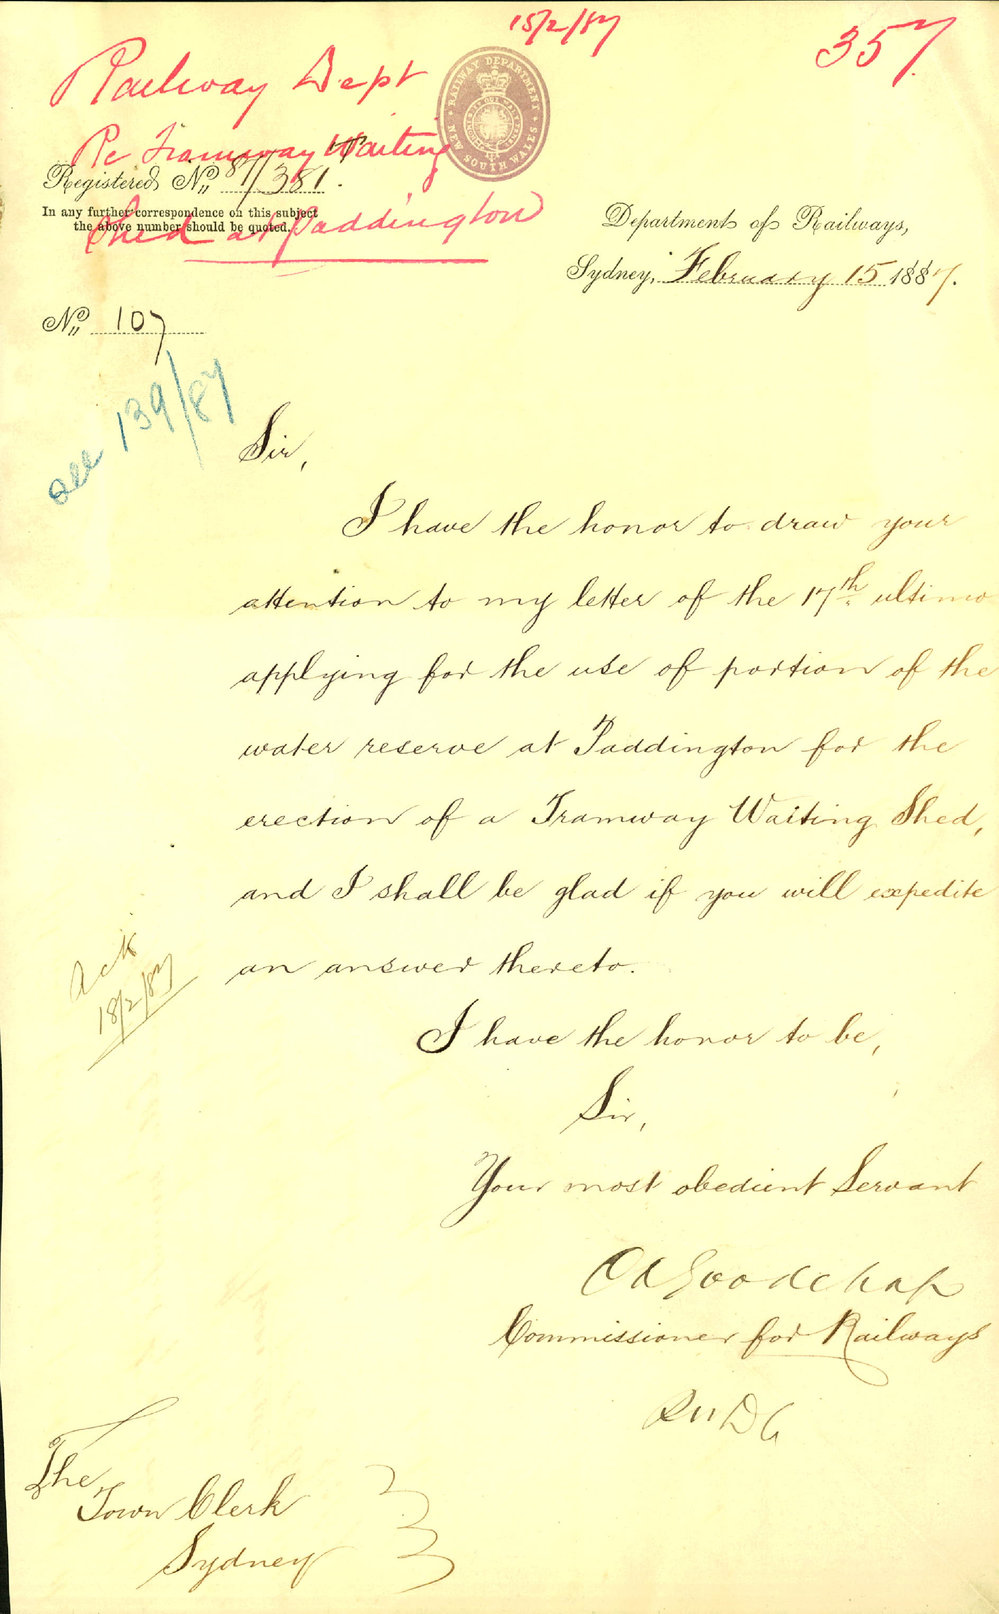 15/2/87
357.
Railway Dept
RAILWAY DEPARTMENT
NEW SOUTH WALES
Re Tramway Waiting
Registered No. 87/381.
In any further correspondence on this subject
the above number should be quoted.
Shed at Paddington
Department of Railways,
Sydney, February 15 1887.
No. 107
139/87
Sir,
I have the honor to draw your
attention to my letter of the 17th. ultimo
applying for the use of portion of the
water reserve at Paddington for the
erection of a Tramway Waiting Shed,
and I shall be glad if you will expedite
an answer thereto.
Ack
18/2/87
I have the honor to be,
Sir,
Your most obedient Servant
Ch A Goodchap
Commissioner for Railways
The
Town Clerk
Sydney